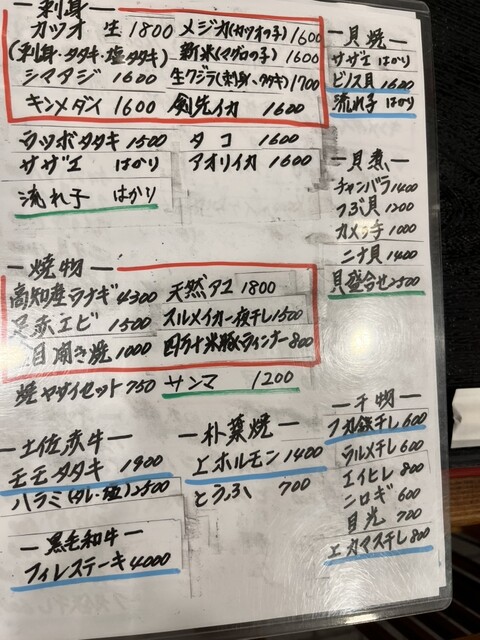 ー刺身ー
カツオ 生1800
(刺身・タタキ・塩タタキ)
シマアジ 1600
キンメダイ 1600
メジカ(カツオの子)1600
新米(マグロの子)1600
生クジラ(刺身、タタキ)1700
剣先イカ 1600
ウツボタタキ 1500
サザエ はかり
流れ子 はかり
タコ 1600
アオリイカ 1600
ー焼物ー
高知産ウナギ4300
足赤エビ 1500
目開き焼 1000
焼ヤサイセット750
天然アユ1800
スルメイカ一夜干し1500
四万十米豚ウィンナー800
サンマ 1200
ー土佐赤牛ー
モモタタキ 1900
ハラミ(タレ・塩)2500
ー黒毛和牛ー
フィレステーキ4000
ー朴葉焼ー
上ホルモン1400
とうふ 700
ー貝焼ー
サザエ はかり
ビノス貝 1600
流れ子 はかり
ー貝煮ー
チャンバラ1400
つぶ貝 1200
カメノ手 1000
ニナ貝 1400
貝盛合せ2500
ー干物ー
フカ鉄干し600
ウルメ干し600
エイヒレ 800
ニロギ 600
目光 700
エカマス干し800